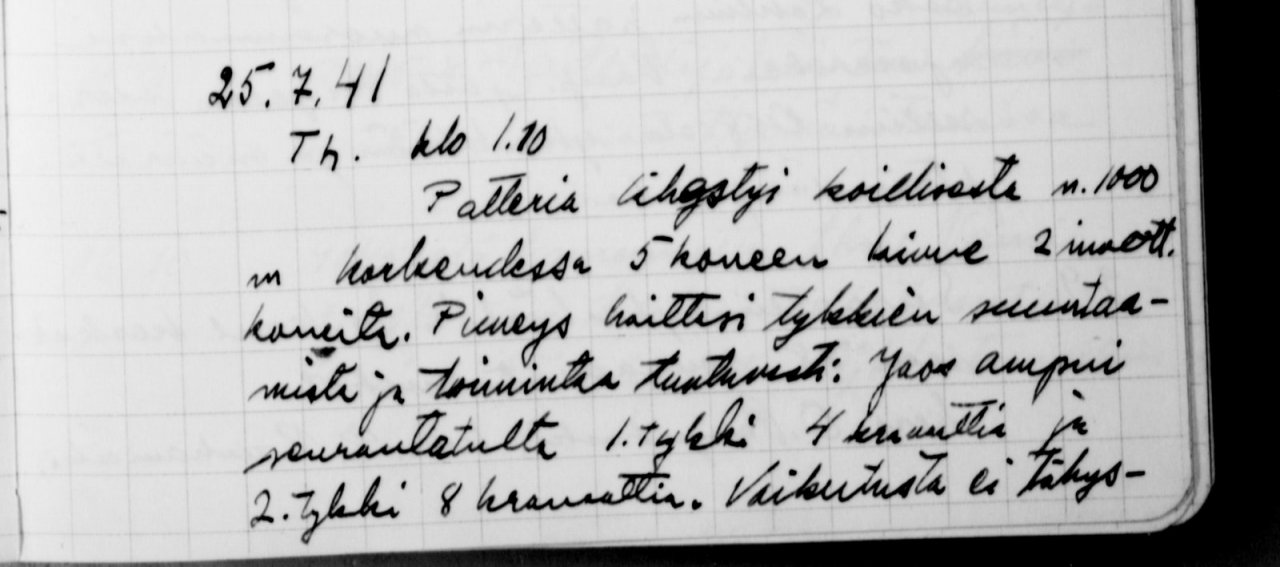 25.7.41
Th. klo 1.10
Patteria lähestyi koillisesta n. 1000
m korkeudessa 5 koneen laivue 2 moott.
koneita. Pimeys haittasi tykkien suuntaa-
mista ja toimintaa tuntuvasti. Jaos ampui
seurantatulta 1. tykki 4 kranaattia ja
2. tykki 8 kranaattia. Vaikutusta ei tähys-